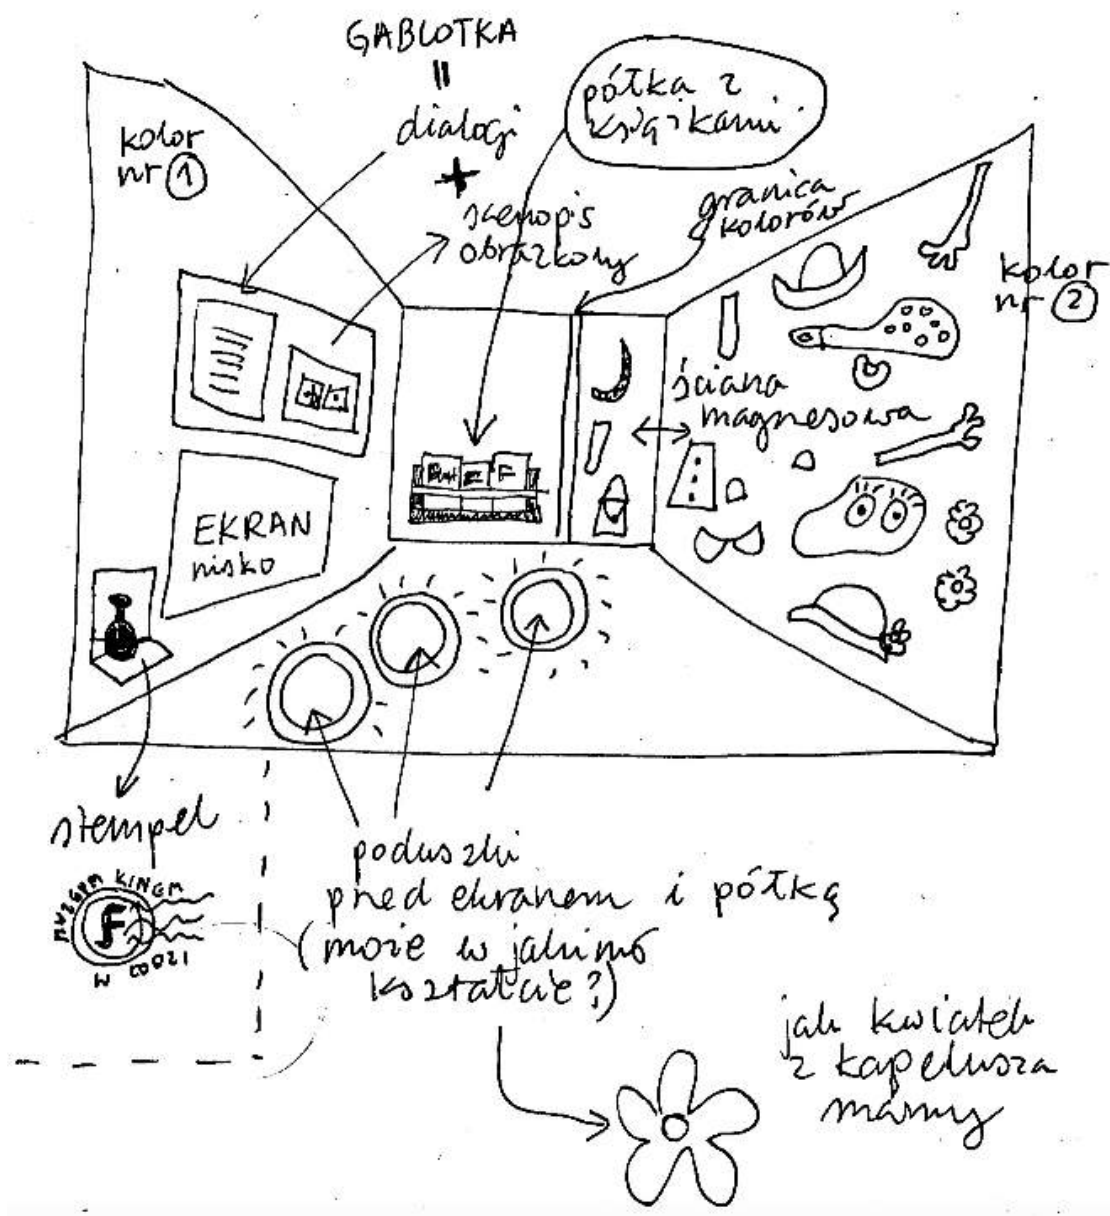 GABLOTKA
=
dialogi
+
scenopis
obrazkowy
półka z
książkami
kolor
nr 1
granica
kolorów
kolor
nr 2
ściana
magnesowa
EKRAN
nisko
stempel
MUZEUM KINEM
W ŁODZI
F
poduszki
przed ekranem i półką
(może w jakimś
kształcie?)
jak kwiatek
z kapelusza
mamy